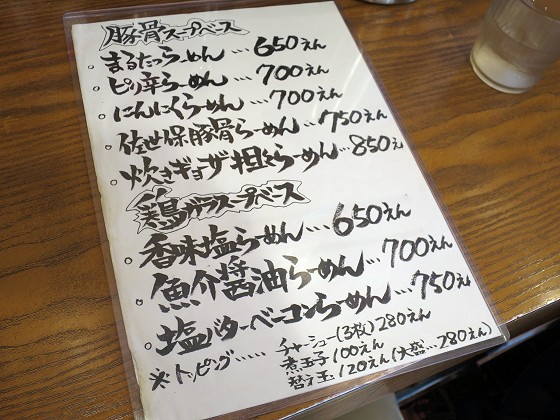 豚骨スープベース
・まるたっらーめん…650えん
・ピリ辛らーめん…700えん
・にんにくらーめん…700えん
・佐世保豚骨らーめん…750えん
・炊きギョーザ担々らーめん…850え
鶏ガラスープベース
・香味塩らーめん…650えん
・魚介醤油らーめん…700えん
・塩バターベーコンらーめん…750えん
※トッピング……チャーシュー(3枚)280えん
煮玉子100えん
替え玉120えん(大盛…280えん)